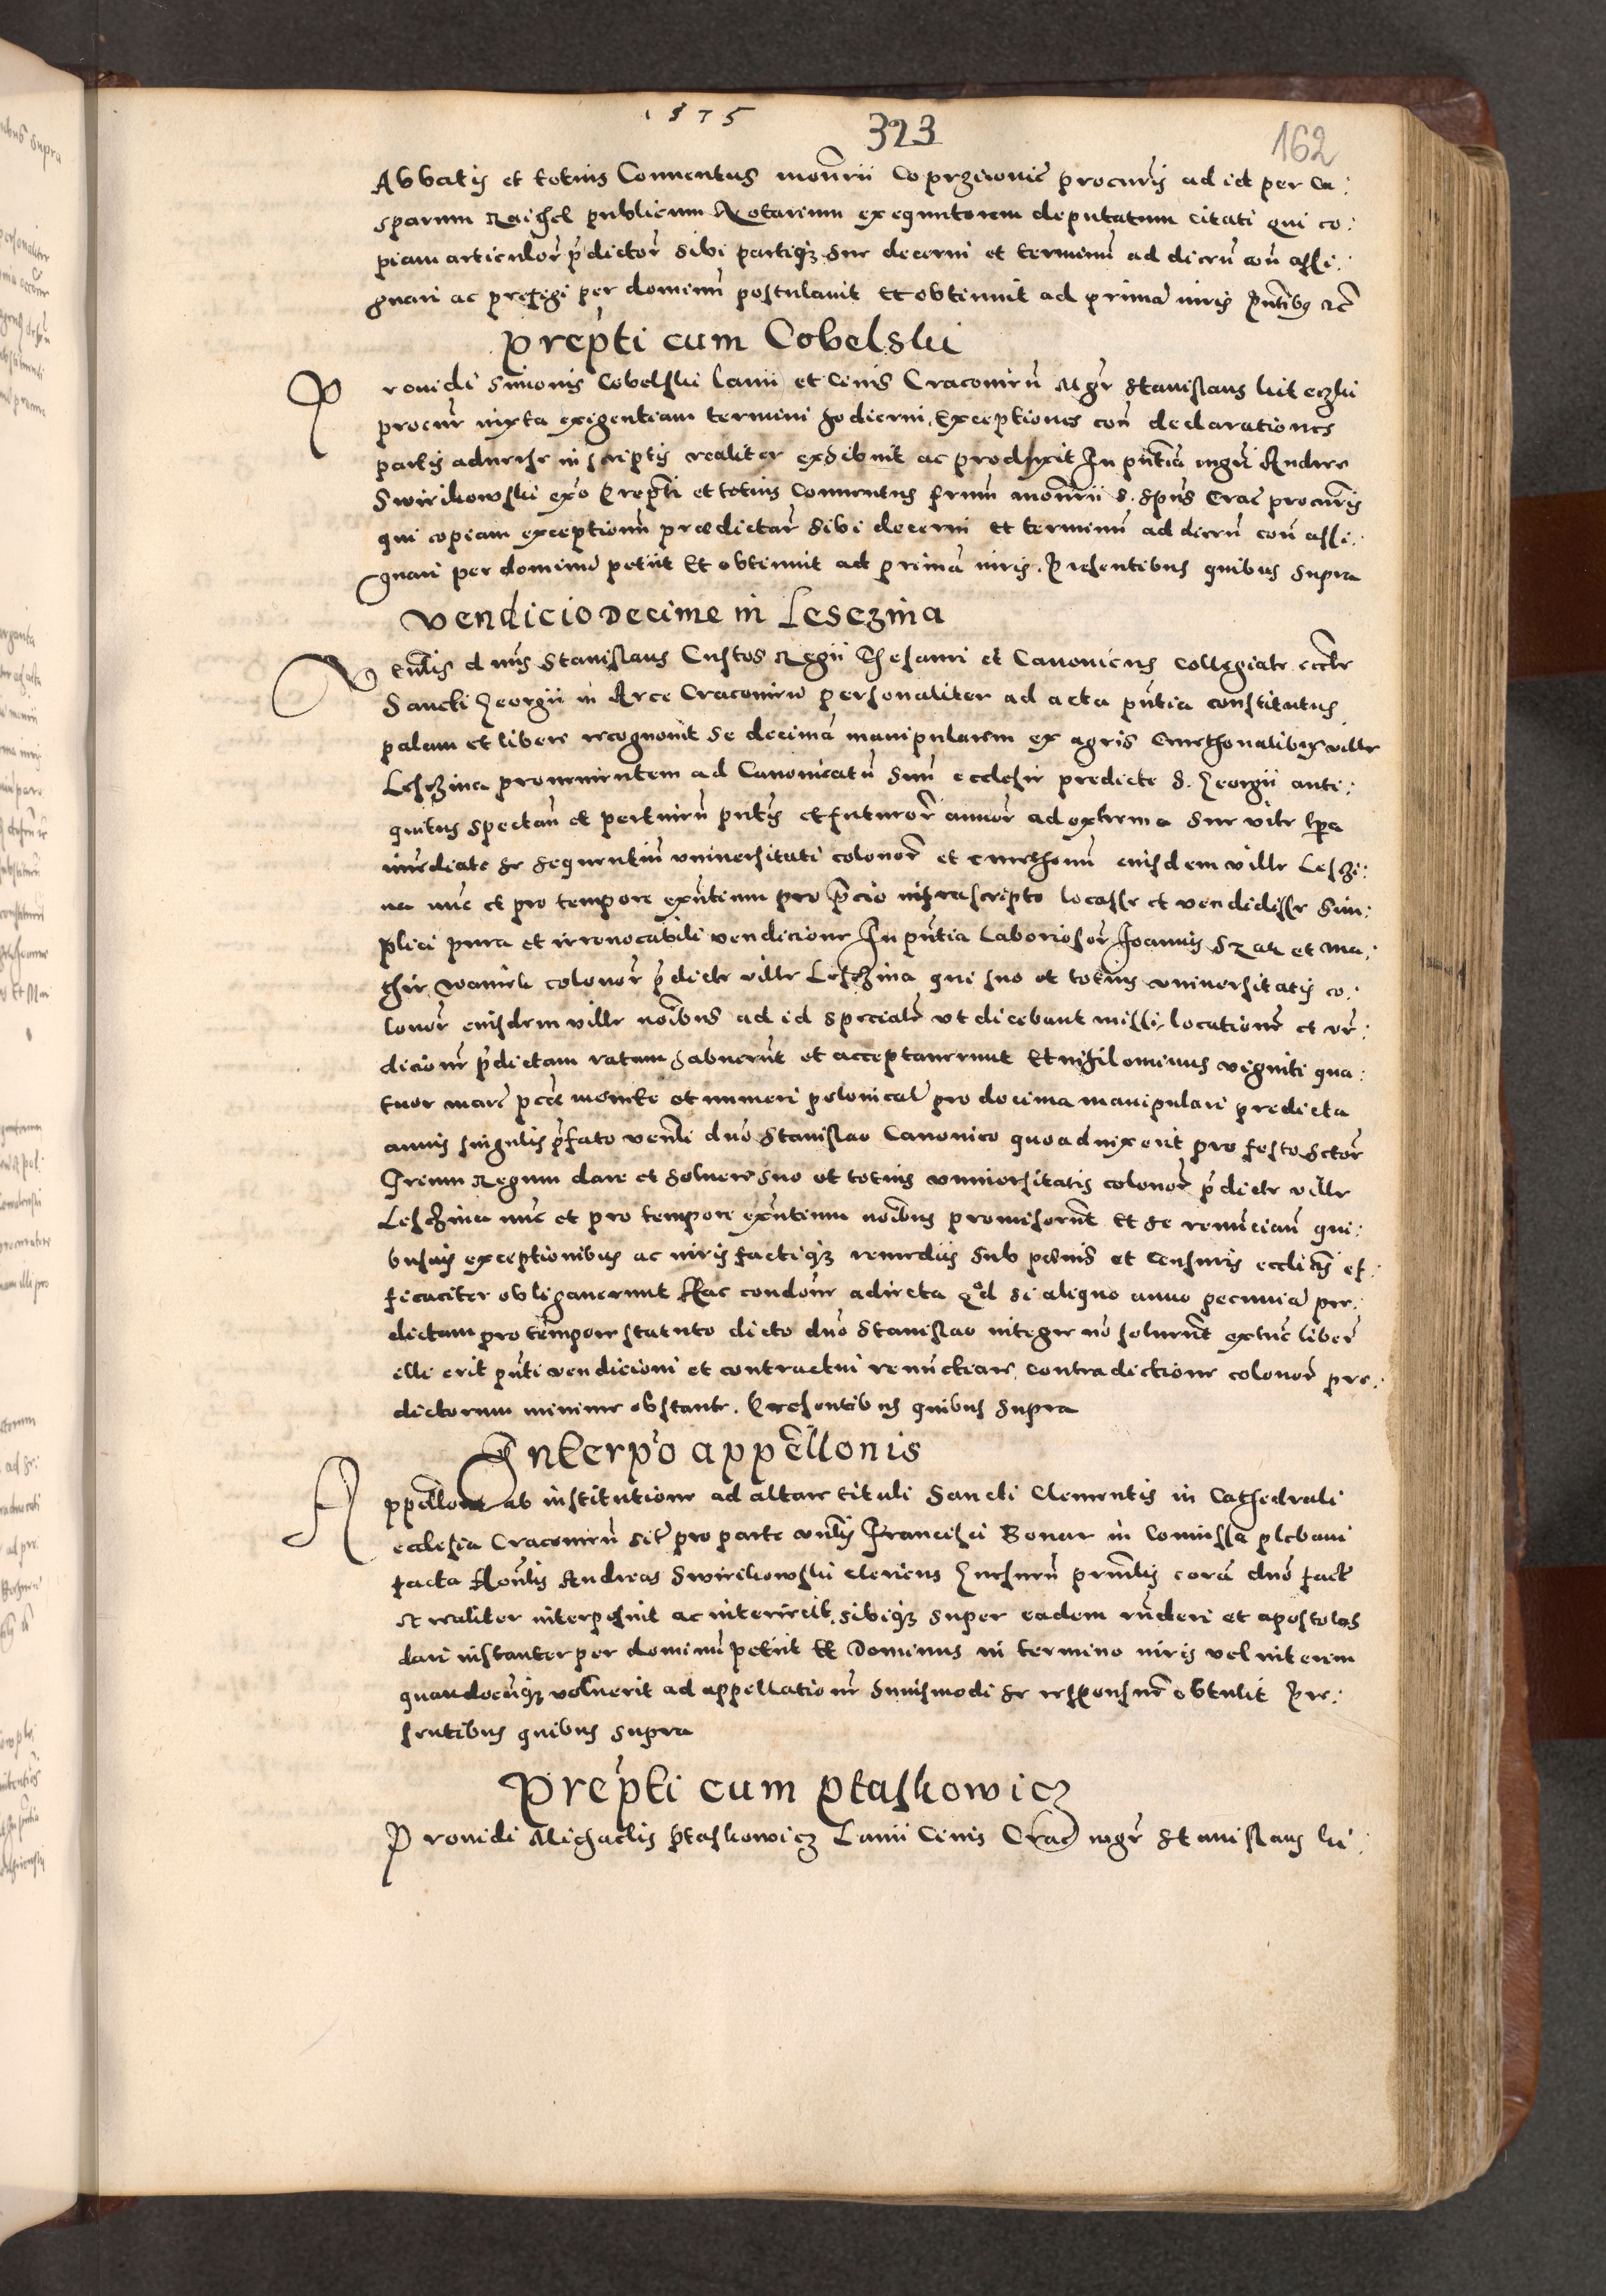 1575
323
162
Abbatis et totius Conuentus mon̄rii Coprziwnic̄ procur̄is ad id per Ca:
sparum Raichel publicum Notarium exequutorem deputatum citati qui co:
piam articulor̄ p̄dictor̄ sibi partiq̄ȝ sue decerni et terminū ad dicen̄ con̄ assi:
gnari ac prefigi per dominū postulauit et obtinuit ad primā iuris p̄ntibus etc̄
Prep̄ti cum Cobelski
Prouidi Simonis Cobelski lanii et Ciuis Cracouien̄ Mgr̄ Stanislaus
procur̄ iuxta exigentiam termini hodierni, Exceptiones con̄ declarationes
partis aduerse in scriptis realiter exhibuit ac produxit In p̄ntia mgr̄i Andree
Swirikowski Prep̄ti et totius Conuentus frum̄ mon̄rii S. Sp̄us Crac̄ procur̄is
qui copiam exceptionū praedictar̄ sibi decerni et terminū ad dicen̄ con̄ assi:
gnari per dominū petiit Et obtinuit ad primā iuris. Presentibus quibus supra
Vendicio Decime in Lesczina
Ven̄lis dn̄us Stanislaus Custos Regii Thesauri et Canonicus Collegiate eccl̄e
Sancti Georgii in Arce Cracouien̄ personaliter ad acta p̄ntia constitutus
palam et libere recognouit se decimā manipularem ex agris Cmethonalibus ville
Lesczina prouenientem ad Canonicatū suū ecclesie predicte S. Georgii anti:
quitus spectan̄ et pertinen̄ p̄ntis et futuror̄ annor̄ ad extrema sue vite tp̄a
im̄ediate se sequentiū vniuersitati colonor̄ et cmethonū eiusdem ville Lesczi:
na nūc et pro tempore exn̄tium pro p̄cio infrascripto locasse et vendidisse sim:
plici pura et irreuocabili vendicione In p̄ntia Laboriosor̄ Joannis et Ma:
thie colonor̄ p̄dicte ville Lesczina qui suo et totius vniuersitatis co:
lonor̄ eiusdem ville noī̄bus ad id specialr̄ vt dicebant missi, locationē et vē:
dicionē p̄dictam ratam habuerūt et acceptauerunt Et nihilominus viginti qua:
tuor marc̄ pec̄e monete et numeri polonicalr̄ pro decima manipulari predicta
annis singulis p̄fato ven̄li dn̄o Stanislao Canonico quoad vixerit pro festo sctor̄
Trium Regum dare et soluere suo et totius vniuersitatis colonor̄ p̄dicte ville
Lesczina nūc et pro tempore exn̄tium noī̄bus promiserūt Et se renuncian̄ qui:
busuis exceptionibus ac iuris factiq̄ȝ remediis sub penis et Censuris eccli̅cis ef:
ficaciter obligauerunt Hac condōne adiecta qd̄ si aliquo anno pecuniā pre:
dictam pro tempore statuto dicto dn̄o Stanislao integre nō soluerīt extūc liberū
illi erit p̄nti vendicioni et contractui renūctiare contradictione colonor̄ pre:
dictorum minime obstante. Presentibus quibus supra
Interp̄o appellōnis
Appellōnē ab institutione ad altare tituli Sancti Clementis in Cathedrali
ecclesia Cracouien̄ sit̄ pro parte ven̄lis Francisci Bonar in Comissa plebani
facta Hon̄lis Andreas Swirikowski clericus Gnesnen̄ prin̄lis corā dn̄o fact̄
et realiter interposuit ac interiecit, sibiq̄ȝ super eadem rn̄deri et apostolos
dari instanter per dominū petiit Et Dominus in termino iuris vel interim
quandocūq̄ȝ voluerit ad appellationē huiusmodi se responsurū obtulit Pre:
sentibus quibus supra
Prep̄ti cum Ptaskowicz
Prouidi Michaelis Ptaskowicz Lanii Ciuis Crac̄ mgr̄ Stanislaus ki: